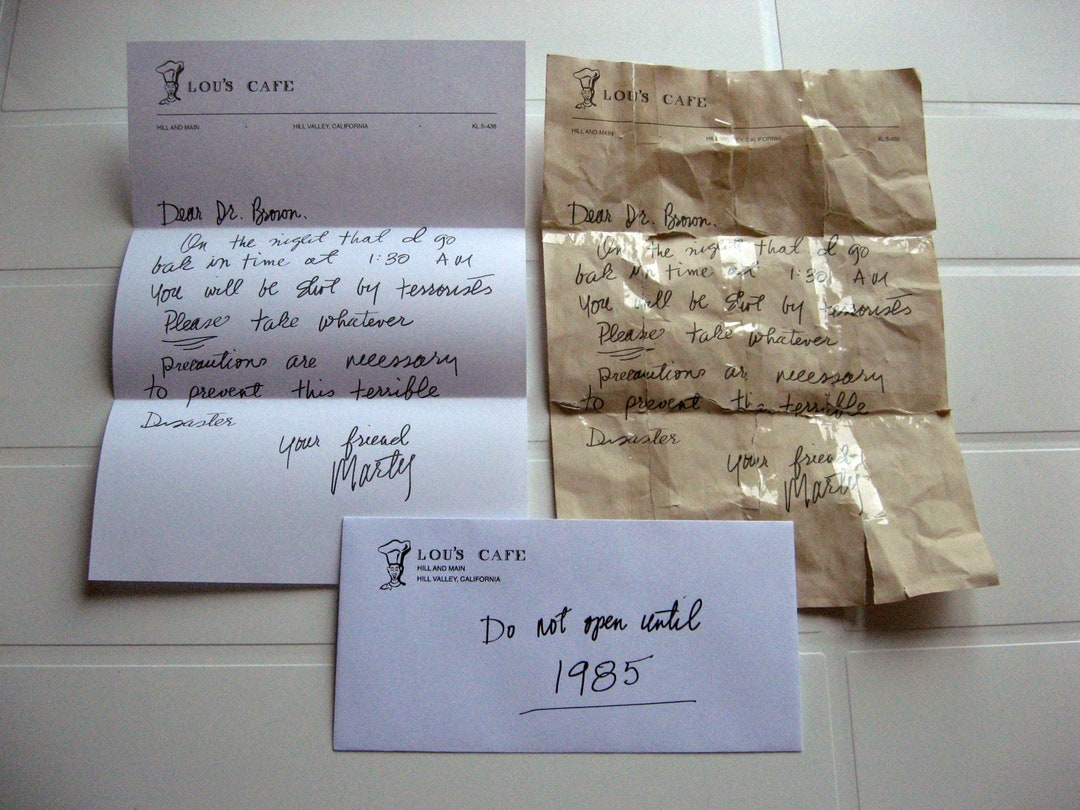 LOU'S CAFE
HILL AND MAIN HILL VALLEY, CALIFORNIA KL-5-438
Dear Dr. Brown.
On the night that I go
back in time at 1:30 AM
You will be shot by terrorists
Please take whatever
precautions are necessary
to prevent this terrible
Disaster
your friend
Marty
LOU'S CAFE
HILL AND MAIN HILL VALLEY, CALIFORNIA KL-5-438
Dear Dr. Brown.
On the night that I go
back in time at 1:30 AM
You will be shot by terrorists
Please take whatever
precautions are necessary
to prevent this terrible
Disaster
your friend
Marty
LOU'S CAFE
HILL AND MAIN
HILL VALLEY, CALIFORNIA
Do not open until
1985